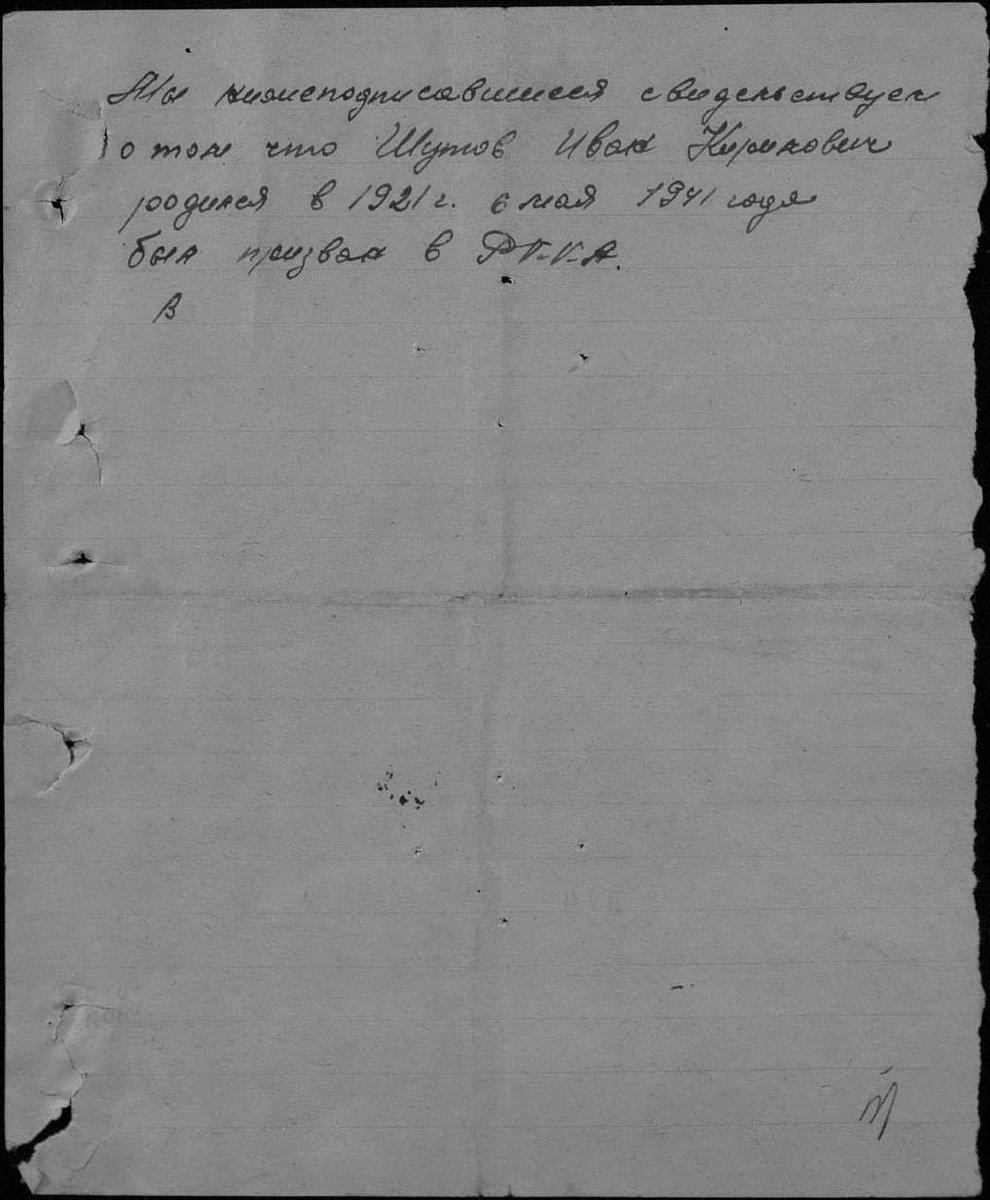 Мы нижеподписавшиеся свидельствуем
о том что Шутов Иван Кирикович
родился в 1921 г. в мая 1941 года
был призван в РККА.
В